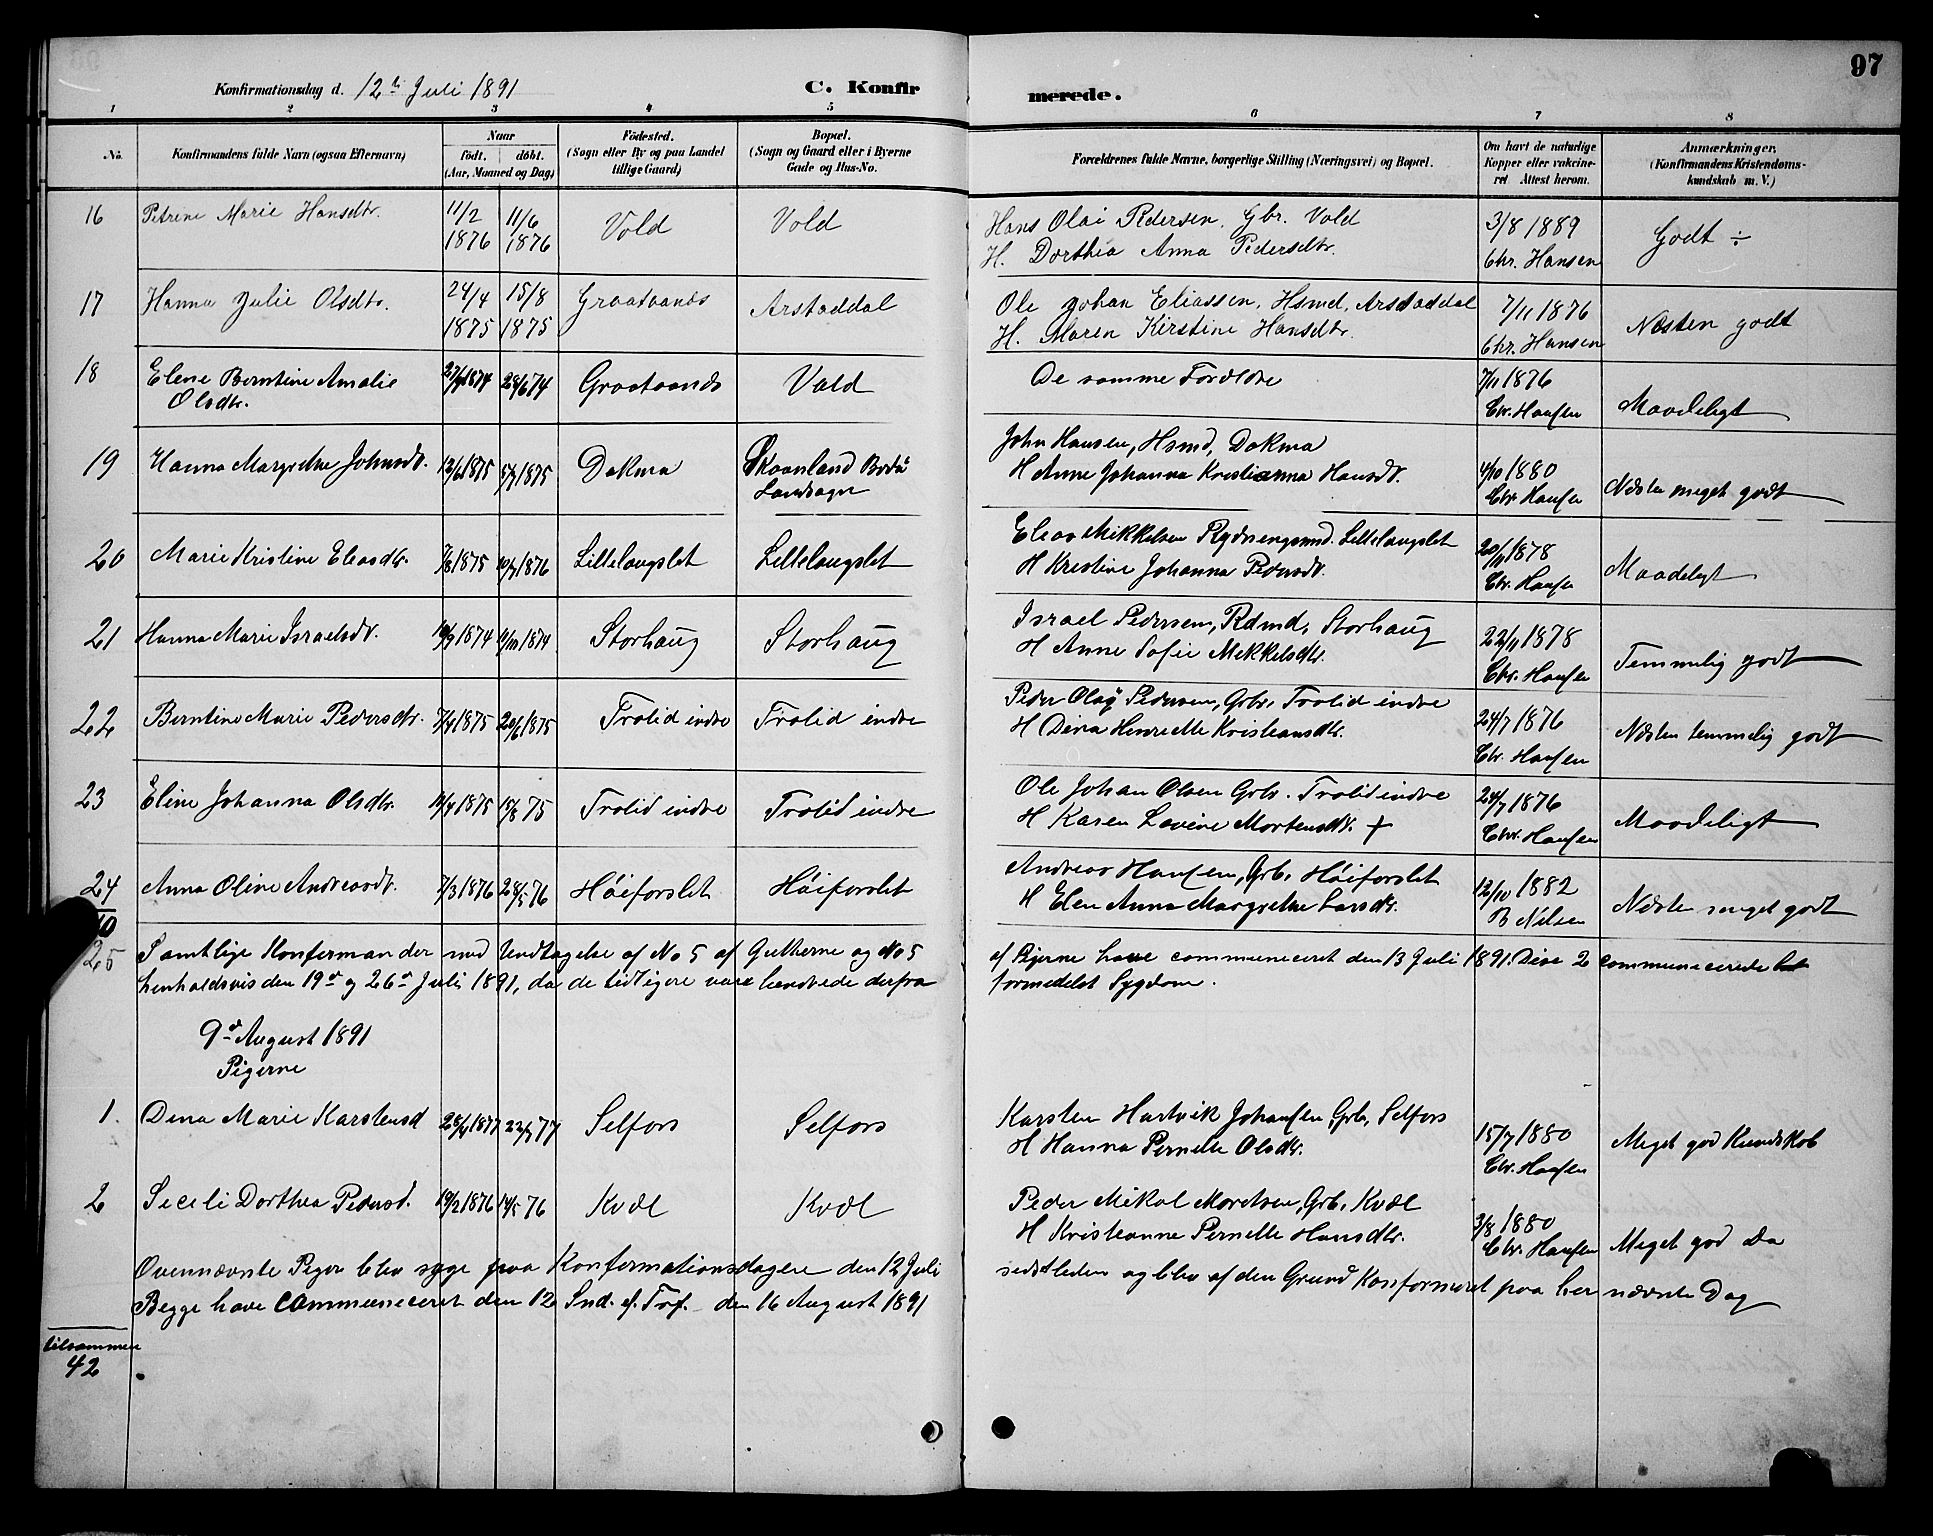 97
Konfirmationsdag d. 12te Juli 1891 C. Konfirmerede.
1 2 3 4 5 6 7 8
No. Konfirmandens fulde Navn (ogsaa Efternavn) Naar født. døbt. (Aar, Maaned og Dag) Fødested. (Sogn eller By og paa Landet tillige Gaard) Bopæl. (Sogn og Gaard eller i Byerne Gade og Hus-No. Forældrenes fulde Navne, borgerlige Stilling (Næringsvei) og Bopæl. Om havt de naturlige Kopper eller vaccineret Attest herom. Anmærkninger. (Konfirmandens Kristendomskundskab m. V.)
16 Petrine Marie Hansdtr. 11/2 1876 11/6 1876 Vold Vold Hans Olai Pedersen, Gbr. Vold 3/8 1889 Godt ÷
H. Dorthea Anna Pedersdtr. Chr. Hansen
17 Hanna Julie Olsdtr. 24/4 1875 15/8 1875 Graataanes Arstaddal Ole Johan Eliassen, Hsmd, Arstaddal 7/11 1876 Næsten godt
H. Maren Kirstine Hansdtr. Chr. Hansen
18 Elene Berntine Amalie Olsdtr. 1874 28/6 74 Graataands Vald De samme Forældre 7/11 1876 Maadeligt
Chr. Hansen
19 Hanna Margrethe Johnsdt. 13/6 1875 1875 Dokma Skaanland Bodø Landsogn John Hansen, Hsmd, Dokma 4/10 1880 Næsten meget godt
H Anne Johanna Kristianna Hansdt. Chr. Hansen
20 Marie Kristine Eleasdtr. 7/8 1875 1876 Lillelangslet Lillelangslet Eleas Mikkelsen Rydningsmd. Lillelangslet 20/11 1878 Maadeligt
H Kristine Johanna Pedersdt. Chr. Hansen
21 Hanna Marie Israelsdt. 1874 1874 Storhaug Storhaug Israel Pedersen, Rdmd, Storhaug 22/11 1878 Temmelig godt
H Anne Sofie Mikkelsdtr. Chr. Hansen
22 Berntine Marie Pedersdtr. 7/4 1875 20/6 1875 Trolid indre Trolid indre Peder Olaj Pedersen, Grbr, Trolid indre 24/7 1876 Næsten temmelig godt
H Dina Henriette Kristiansdtr. Chr. Hansen
23 Eline Johanna Olsdtr. 1875 15/8 75 Trolid indre Trolid indre Ole Johan Olsen Grbr. Trolid indre 24/7 1876 Maadeligt
H Karen Lovine Mortensdtr. + Chr. Hansen
24 Anna Oline Andreasdt. 7/3 1876 28/5 76 Høiforslet Høiforslet Andreas Hansen, Grb, Høiforslet 12/10 1882 Næsten meget godt
H Elen Anna Margrethe Larsdtr. B Nilsen
25 Samtlige Konfermander med Undtagelse af No 5 af Gutterne og No 5 af Pigerne have communiceret den 13 Juli 1891. Disse 2 communicerede
henholdsvis den 19de og 26de Juli 1891, da de tidligere vare hendrede derfra formedelst Sygdom.
9de August 1891
Pigerne
1. Dina Marie Karstensd 28/4 1877 22/7 77 Selfors Selfors Karsten Hartvik Johansen, Grb, Selfors 15/7 1880 Meget god Kundskab
H Hanna Pernelle Olsdtr. Chr. Hansen
2 Seceli Dorthea Pedersd. 19/2 1876 14/5 76 Kvæl Kvæl Peder Mikal Moretsen, Grb, Kvæl 3/8 1880 Meget god Do
H Kristeanne Pernelle Hansdtr. Chr. Hansen
Ovennævnte Piger blev syge paa Konformationsdagen den 12 Juli sidstleden og blev af den Grund Konformeret paa her nævnte Dag
Begge have communeceret den 12 Snd. ef. Tref. den 16 August 1891
tilsammen
42